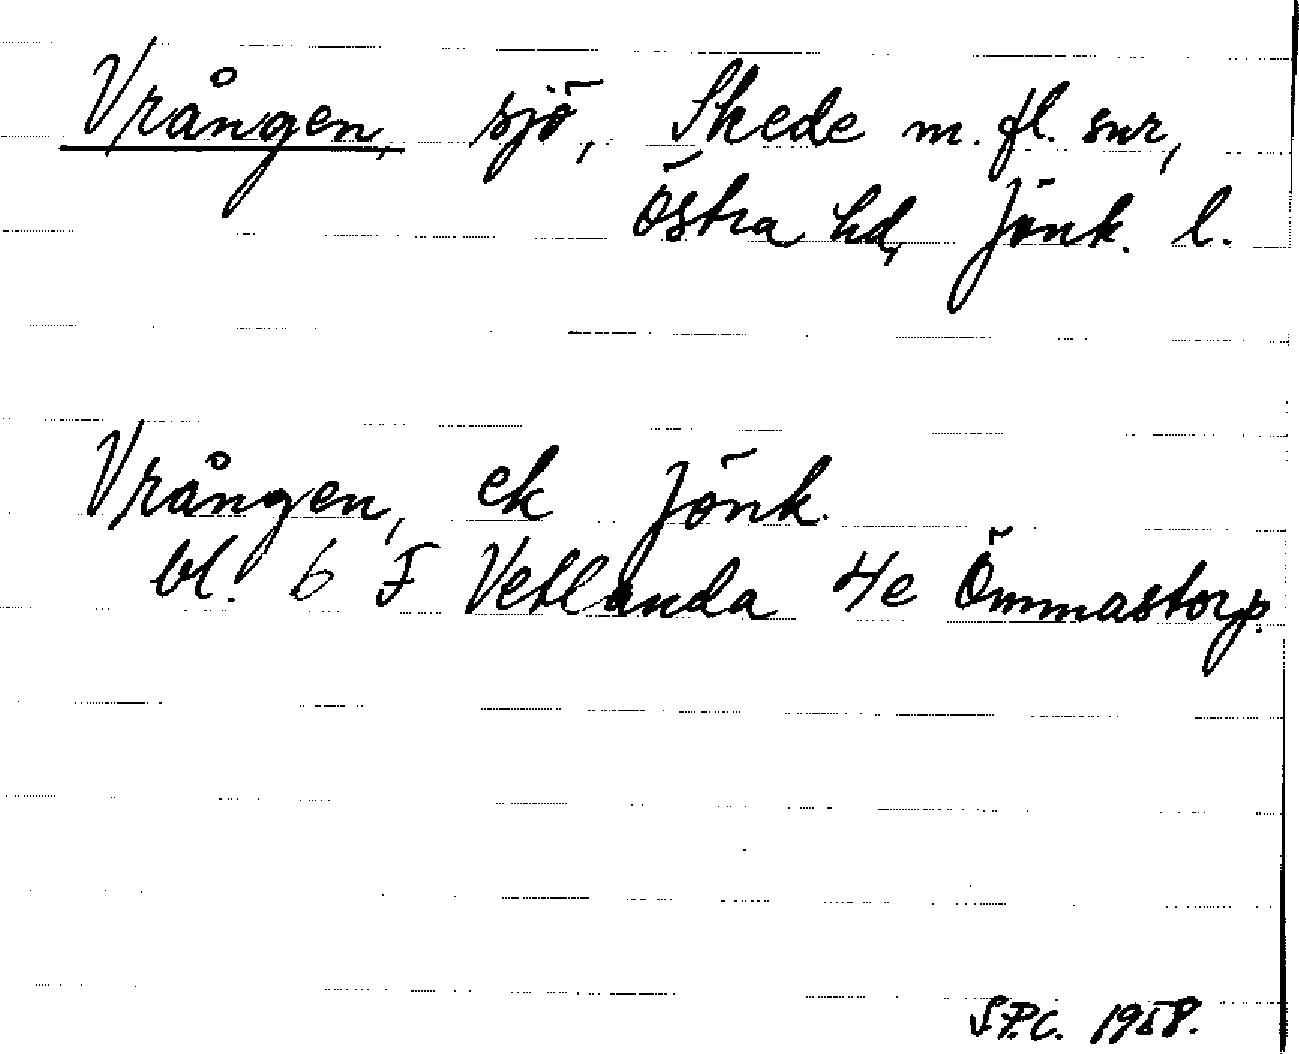 Vrången, sjö, Skede m. fl. snr,
Östra hd, Jönk. l.
Vrången, ek Jönk.
bl. 6 F Vetlanda 4e Ömmastorp.
S.P.C. 1958.